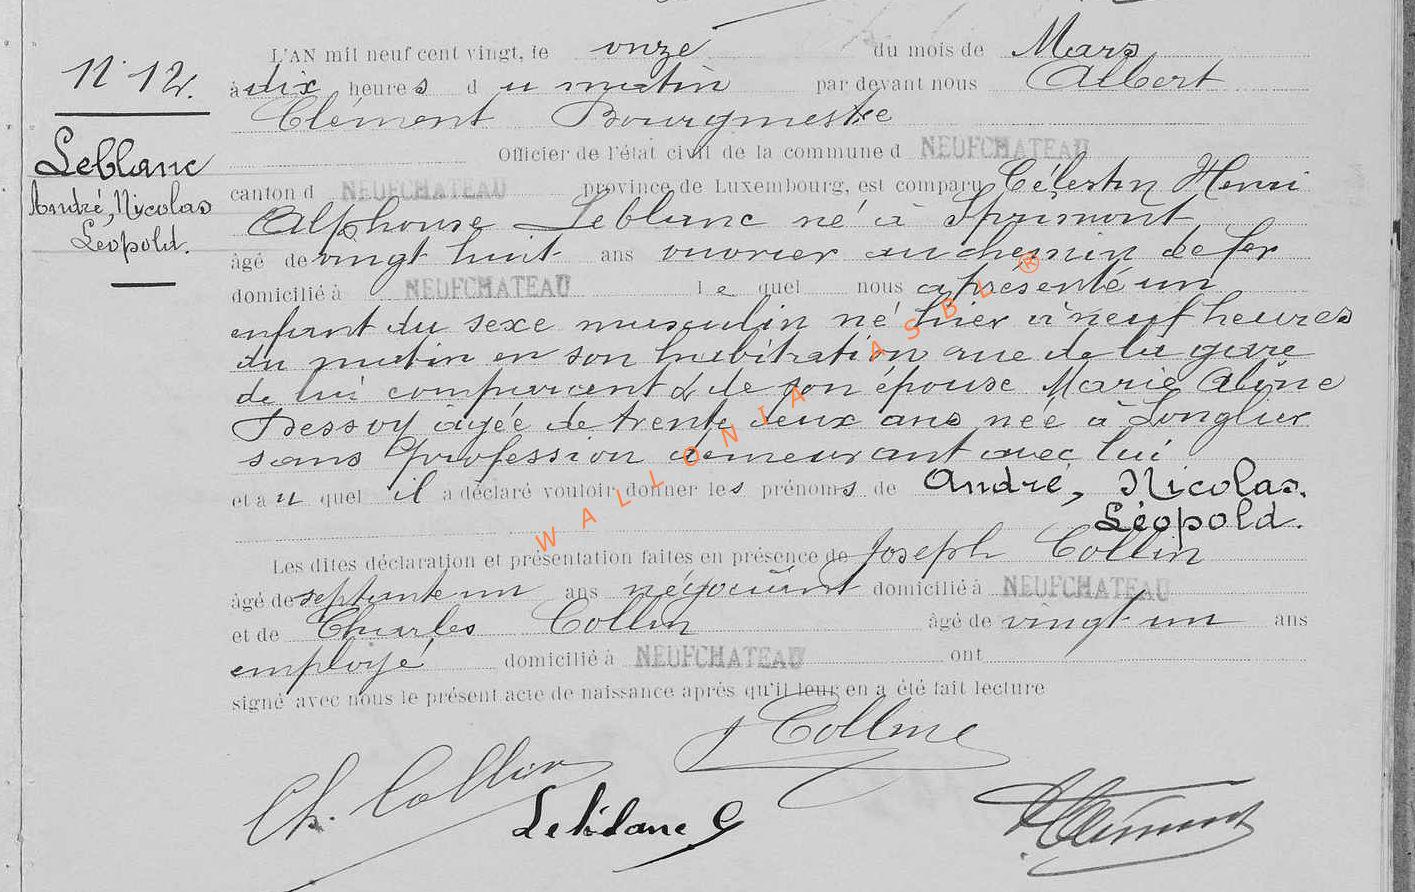 N° 12.
Leblanc
André, Nicolas
Léopold.
L'AN mil neuf cent vingt, le onze du mois de Mars
à dix heures du matin par devant nous Albert
Clément Bourgmestre
Officier de l'état civil de la commune d NEUFCHATEAU
canton d NEUFCHATEAU province de Luxembourg, est comparu Célestin Henri
Alphonse Leblanc né à Sprimont
âgé de vingt huit ans ouvrier au chemin de fer
domicilié à NEUFCHATEAU lequel nous a présenté un
enfant du sexe masculin né hier à neuf heures
du matin en son habitation rue de la gare
de lui comparant & de son épouse Marie Aline
Dessoy âgée de trente deux ans née à Longlier
sans profession demeurant avec lui
et auquel il a déclaré vouloir donner les prénoms de André, Nicolas.
Léopold.
Les dites déclaration et présentation faites en présence de Joseph Collin
âgé de septante un ans négociant domicilié à NEUFCHATEAU
et de Charles Collin âgé de vingt un ans
employé domicilié à NEUFCHATEAU ont
signé avec nous le présent acte de naissance après qu'il leur en a été fait lecture
J Collin
Ch. Collin
Leblanc C
A Clément
WALLONIA ASBL ®